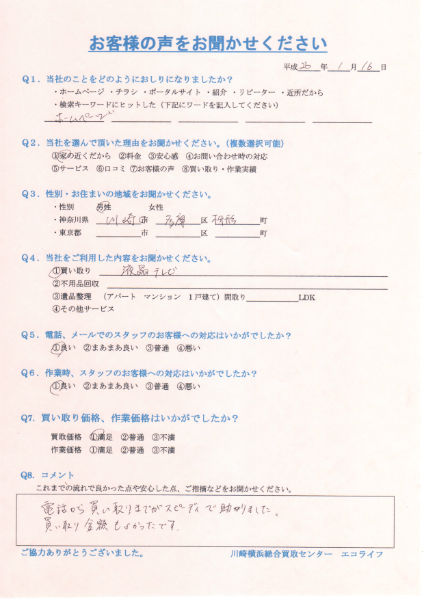 お客様の声をお聞かせください
平成 26 年 1 月 16 日
Q1．当社のことをどのようにおしりになりましたか？
・ホームページ ・チラシ ・ポータルサイト ・紹介 ・リピーター ・近所だから
・検索キーワードにヒットした（下記にワードを記入してください）
ホームページ
Q2．当社を選んで頂いた理由をお聞かせください。（複数選択可能）
①家の近くだから ②料金 ③安心感 ④お問い合わせ時の対応
⑤サービス ⑥口コミ ⑦お客様の声 ⑧買い取り・作業実績
Q3．性別・お住まいの地域をお聞かせください。
・性別 男性 女性
・神奈川県 川崎 市 多摩 区 町
・東京都 市 区 町
Q4．当社をご利用した内容をお聞かせください。
①買い取り 液晶テレビ
②不用品回収
③遺品整理 （アパート マンション 1戸建て）間取り LDK
④その他サービス
Q5．電話、メールでのスタッフのお客様への対応はいかがでしたか？
①良い ②まあまあ良い ③普通 ④悪い
Q6．作業時、スタッフのお客様への対応はいかがでしたか？
①良い ②まあまあ良い ③普通 ④悪い
Q7．買い取り価格、作業価格はいかがでしたか？
買取価格 ①満足 ②普通 ③不満
作業価格 ①満足 ②普通 ③不満
Q8．コメント
これまでの流れで良かった点や安心した点、ご指摘などをお聞かせください。
電話から買い取りまでがスピーディで助かりました。
買い取り金額もよかったです。
ご協力ありがとうございました。 川崎横浜総合買取センター エコライフ